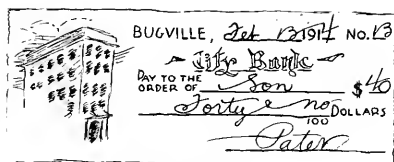 BUGVILLE, Feb 13 1914 NO. 13
City Bank
PAY TO THE
ORDER OF Son $40
Forty & no
100 DOLLARS
Pater